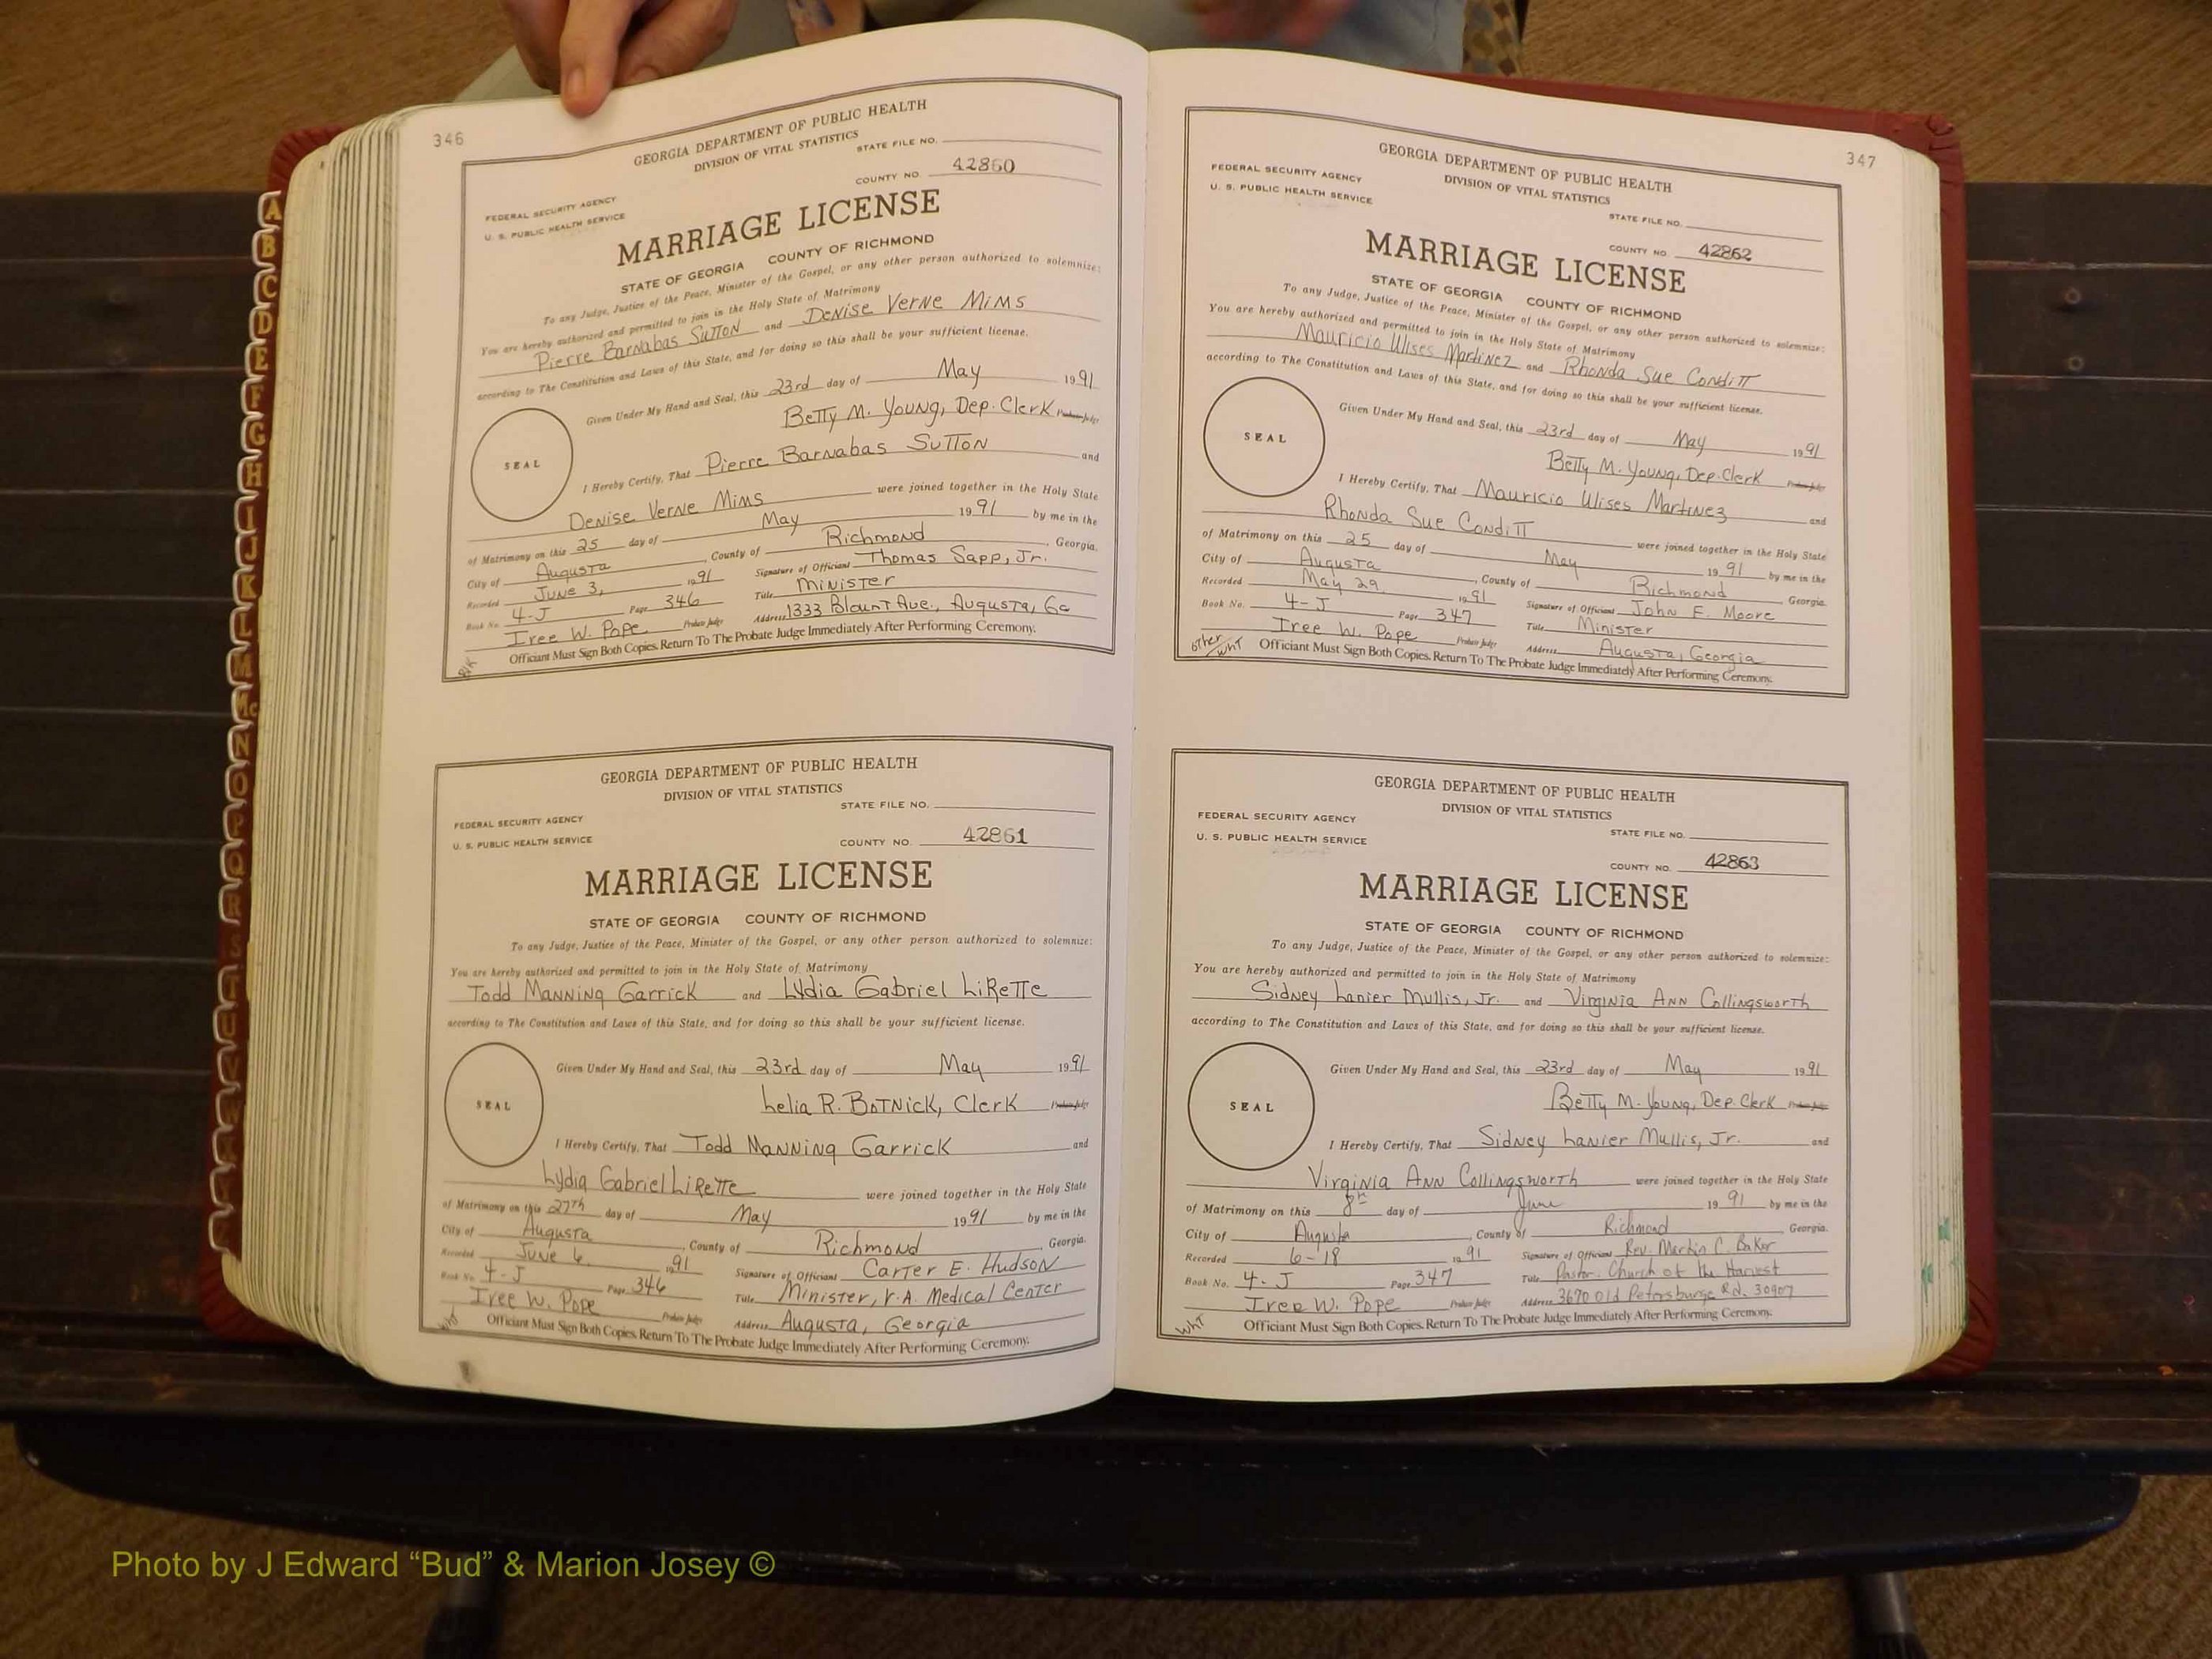 346
GEORGIA DEPARTMENT OF PUBLIC HEALTH
DIVISION OF VITAL STATISTICS
STATE FILE NO.
COUNTY NO. 42860
FEDERAL SECURITY AGENCY
U. S. PUBLIC HEALTH SERVICE
MARRIAGE LICENSE
STATE OF GEORGIA COUNTY OF RICHMOND
To any Judge, Justice of the Peace, Minister of the Gospel, or any other person authorized to solemnize:
You are hereby authorized and permitted to join in the Holy State of Matrimony
Pierre Barnabas Sutton and Denise Verne Mims
according to The Constitution and Laws of this State, and for doing so this shall be your sufficient license.
Given Under My Hand and Seal, this 23rd day of May 1991
Betty M. Young, Dep. Clerk Probate Judge
SEAL
I Hereby Certify, That Pierre Barnabas Sutton and
Denise Verne Mims were joined together in the Holy State
of Matrimony on this 25 day of May 1991 by me in the
City of Augusta, County of Richmond, Georgia.
Recorded June 3, 1991 Signature of Officiant Thomas Sapp, Jr.
Book No. 4-J Page 346 Title Minister
Iree W. Pope Probate Judge Address 1333 Blount Ave., Augusta, Ga
Officiant Must Sign Both Copies. Return To The Probate Judge Immediately After Performing Ceremony.
Blk
GEORGIA DEPARTMENT OF PUBLIC HEALTH
DIVISION OF VITAL STATISTICS
STATE FILE NO.
FEDERAL SECURITY AGENCY
U. S. PUBLIC HEALTH SERVICE
COUNTY NO. 42861
MARRIAGE LICENSE
STATE OF GEORGIA COUNTY OF RICHMOND
To any Judge, Justice of the Peace, Minister of the Gospel, or any other person authorized to solemnize:
You are hereby authorized and permitted to join in the Holy State of Matrimony
Todd Manning Garrick and Lydia Gabriel LiRette
according to The Constitution and Laws of this State, and for doing so this shall be your sufficient license.
Given Under My Hand and Seal, this 23rd day of May 1991
Lelia R. Botnick, Clerk Probate Judge
SEAL
I Hereby Certify, That Todd Manning Garrick and
Lydia Gabriel LiRette were joined together in the Holy State
of Matrimony on this 27th day of May 1991 by me in the
City of Augusta, County of Richmond, Georgia.
Recorded June 6, 1991 Signature of Officiant Carter E. Hudson
Book No. 4-J Page 346 Title Minister, V.A. Medical Center
Iree W. Pope Probate Judge Address Augusta, Georgia
Officiant Must Sign Both Copies. Return To The Probate Judge Immediately After Performing Ceremony.
347
GEORGIA DEPARTMENT OF PUBLIC HEALTH
DIVISION OF VITAL STATISTICS
FEDERAL SECURITY AGENCY
U. S. PUBLIC HEALTH SERVICE
STATE FILE NO.
COUNTY NO. 42862
MARRIAGE LICENSE
STATE OF GEORGIA COUNTY OF RICHMOND
To any Judge, Justice of the Peace, Minister of the Gospel, or any other person authorized to solemnize:
You are hereby authorized and permitted to join in the Holy State of Matrimony
Mauricio Ulises Martinez and Rhonda Sue Conditt
according to The Constitution and Laws of this State, and for doing so this shall be your sufficient license.
Given Under My Hand and Seal, this 23rd day of May 1991
Betty M. Young, Dep. Clerk Probate Judge
SEAL
I Hereby Certify, That Mauricio Ulises Martinez and
Rhonda Sue Conditt were joined together in the Holy State
of Matrimony on this 25 day of May 1991 by me in the
City of Augusta, County of Richmond, Georgia.
Recorded May 29 1991 Signature of Officiant John E. Moore
Book No. 4-J Page 347 Title Minister
Iree W. Pope Probate Judge Address Augusta, Georgia
other/WhT Officiant Must Sign Both Copies. Return To The Probate Judge Immediately After Performing Ceremony.
GEORGIA DEPARTMENT OF PUBLIC HEALTH
DIVISION OF VITAL STATISTICS
FEDERAL SECURITY AGENCY
U. S. PUBLIC HEALTH SERVICE
STATE FILE NO.
COUNTY NO. 42863
MARRIAGE LICENSE
STATE OF GEORGIA COUNTY OF RICHMOND
To any Judge, Justice of the Peace, Minister of the Gospel, or any other person authorized to solemnize:
You are hereby authorized and permitted to join in the Holy State of Matrimony
Sidney Lanier Mullis, Jr. and Virginia Ann Collingsworth
according to The Constitution and Laws of this State, and for doing so this shall be your sufficient license.
Given Under My Hand and Seal, this 23rd day of May 1991
Betty M. Young, Dep Clerk Probate Judge
SEAL
I Hereby Certify, That Sidney Lanier Mullis, Jr. and
Virginia Ann Collingsworth were joined together in the Holy State
of Matrimony on this 8th day of June 1991 by me in the
City of Augusta, County of Richmond Georgia.
Recorded 6-18 1991 Signature of Officiant Rev. Martin C. Baker
Book No. 4-J Page 347 Title Pastor. Church of the Harvest
Iree W. Pope Probate Judge Address 3670 Old Petersburge Rd. 30907
WhT Officiant Must Sign Both Copies. Return To The Probate Judge Immediately After Performing Ceremony.
A
B
C
D
E
F
G
H
I
J
K
L
M
Mc
N
O
P
Q
R
S
T
U
V
W
Photo by J Edward “Bud” & Marion Josey ©